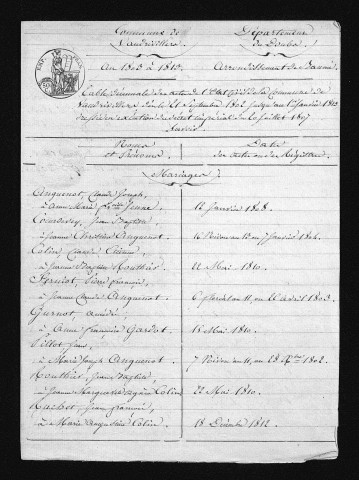 Commune de
Landresse
Département
du Doubs.
An 1802 à 1812.
Arrondissement de Baume.
Table décennale des actes de l'Etat civil de la Commune de
depuis le 21 Septembre 1802 jusqu'au 1er janvier 1813
en exécution du Décret impérial du 20 juillet 1807
Savoir
Noms
et Prénoms
Date
des actes ou des Registres
Mariages
Anguenot, Claude Joseph,
à Anne Marie Jeune
12 Janvier 1808.
Jean Baptiste
à Jeanne Christine Anguenot.
16 nivose an 12 ou 7 janvier 1804.
Colin, Claude Etienne,
à Jeanne Baptiste Mouthier
22 Mai 1810.
Pierre françois,
à Jeanne Claude Anguenot
6 floréal an 11, ou 26 avril 1803.
à Anne françoise Gardot
15 Mai 1810.
Billot, Jean,
à Marie Joseph Anguenot.
7 Nivose an 11, ou 28 Xbre 1802.
Mouthier, Jean Baptiste
à Jeanne Marguerite Colin
22 Mai 1810.
Jean françois,
à Marie Colin.
18 Décembre 1812.